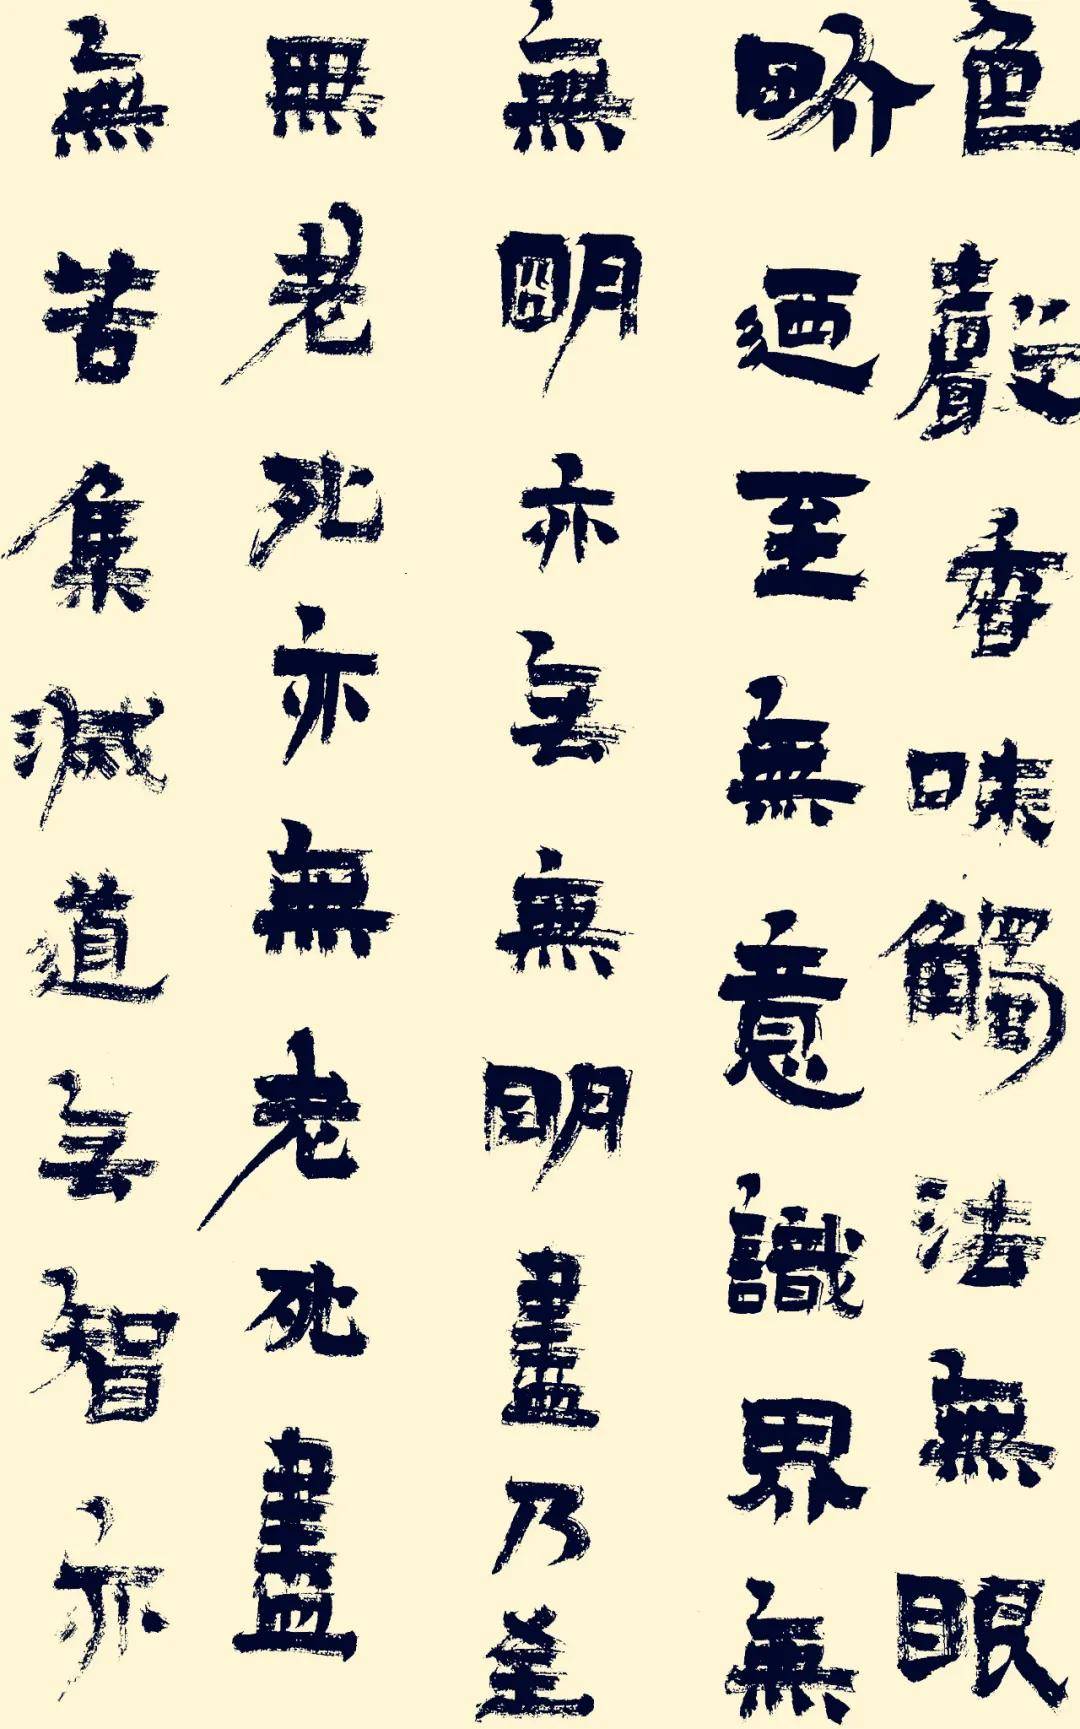 色聲香味觸法無眼
界迺至無意識界無
無明亦無無明盡乃至
無老死亦無老死盡
無苦集滅道無智亦